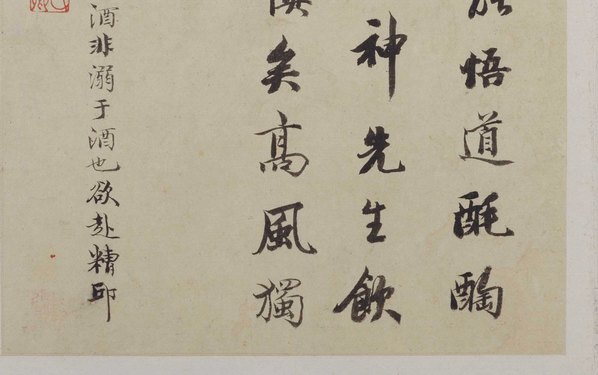 悟道酕醄
神先生飲
矣高風獨
酒非溺于酒也欲赴糟邱